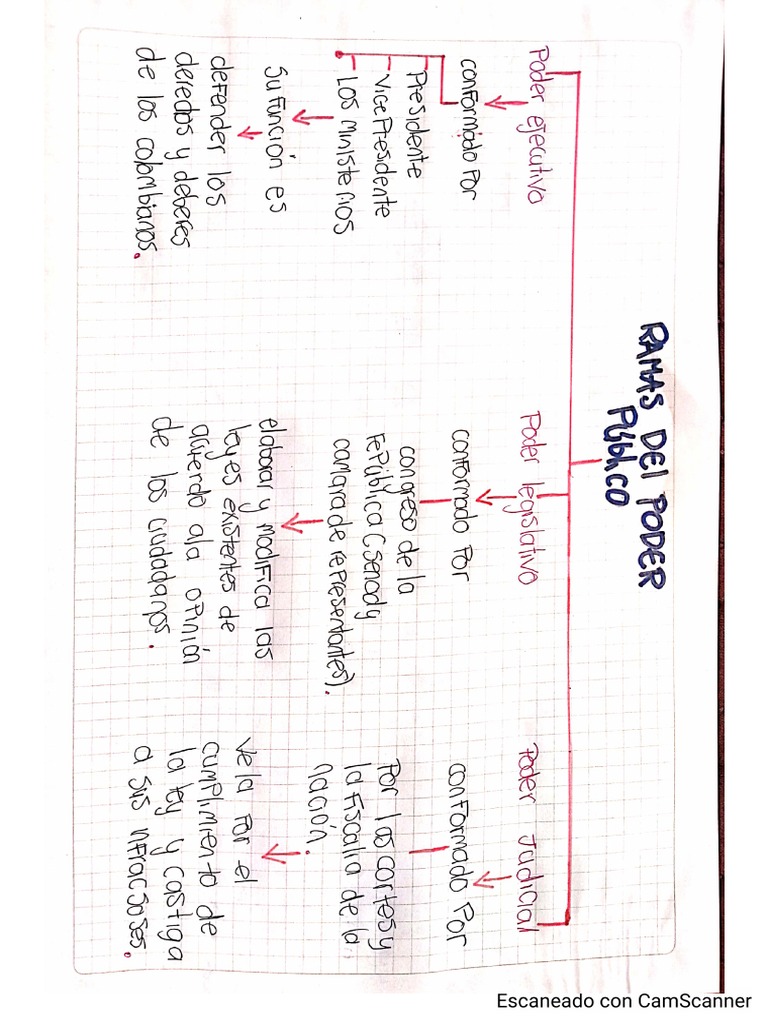 RAMAS DEl PODER
Público
Poder ejecutivo
conformado Por
Presidente
VicePresidente
Los Ministerios
Su función es
defender los
deredos y deberes
de los colombianos.
Poder legislativo
conformado Por
congreso de la
rePública (senado y
camara de representantes).
elaborar y modifica las
leyes existentes de
acuerdo ala opinión
de los ciudadanos.
Poder Judicial
conformado Por
Por las cortes y
la fiscalia de la
nación.
Vela Por el
cumplimiento de
la ley y castiga
a sus infracsoses.
Escaneado con CamScanner